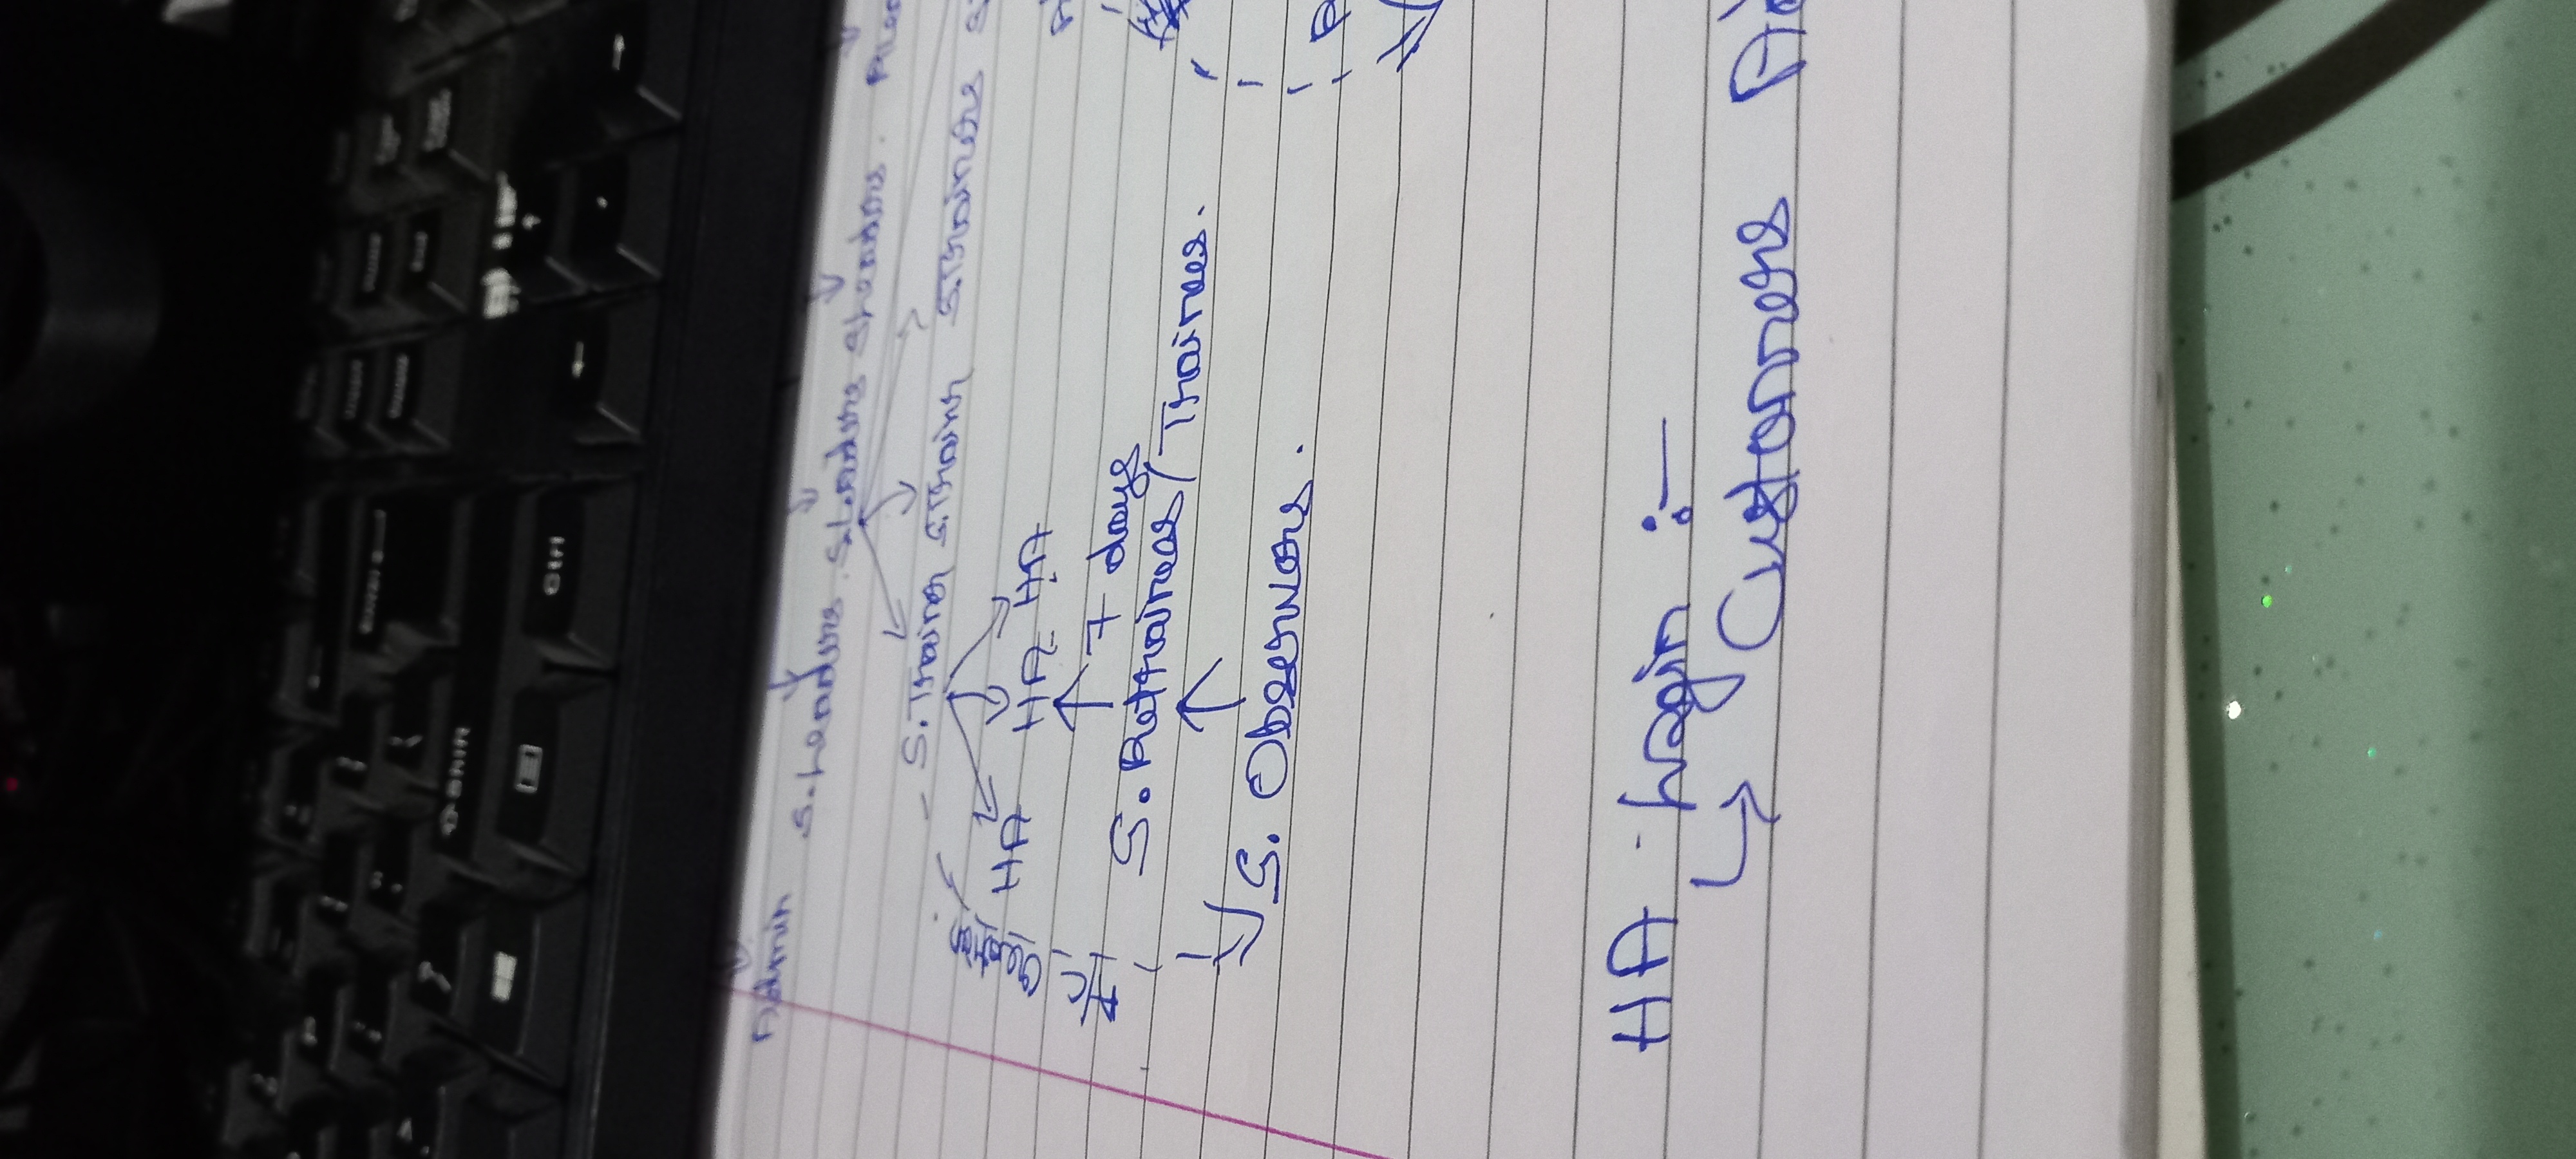 Shift
Ctrl
Admin S.Leaders S.Leaders S.Leaders
S.Trainer S.Trainer S.Trainers
A/C Creation
HA HA HA
7 days
S. Retrainees/Trainees.
S. Observors.
HA - Login :-
Customers